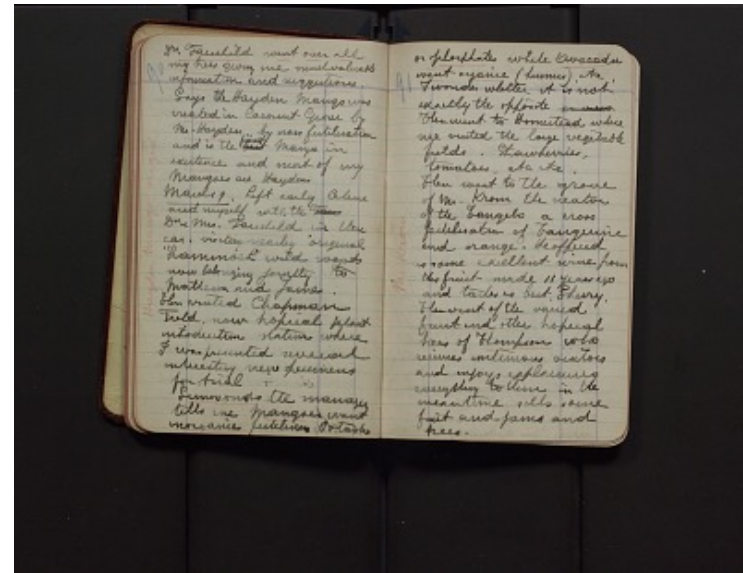 90
Dr. Fairchild went over all
my trees giving me much valuable
information and suggestions.
Says the Hayden Mango was
created in Cocoanut Grove by
Mr. Hayden, by cross fertilisation
and is the Mango in
existence and most of my
Mangoes are Haydens
March 9. Left early
and myself with the
Dr. Mrs. Fairchild in their
car. visiting nearby original
"hammock" wild woods
now belonging jointly to
Matheson and James.
Then visited Chapman
Field, now tropical plant
introduction station where
I was presented several
interesting new specimens
for trial
Simmonds the manager
tells me Mangoes want
inorganic fertilisers Potash
91
or phosphates while Avocados
want organic (humus) etc.
I wonder whether it is not
exactly the opposite
Then went to Homestead where
we visited the large vegetable
fields. Strawberries,
tomatoes, etc etc.
Then went to the grove
of Mr. Krom the creator
of the Tangelo a cross
fertilisation of tangerine
and orange. He offered
us some excellent wine from
this fruit made 11 years ago
and tastes as best Sherry.
Then went of the varied
fruit and other tropical
trees of Thompson who
receives continuous visitors
and enjoys explaining
everything to them in the
meantime sells some
fruit and jams and
trees.